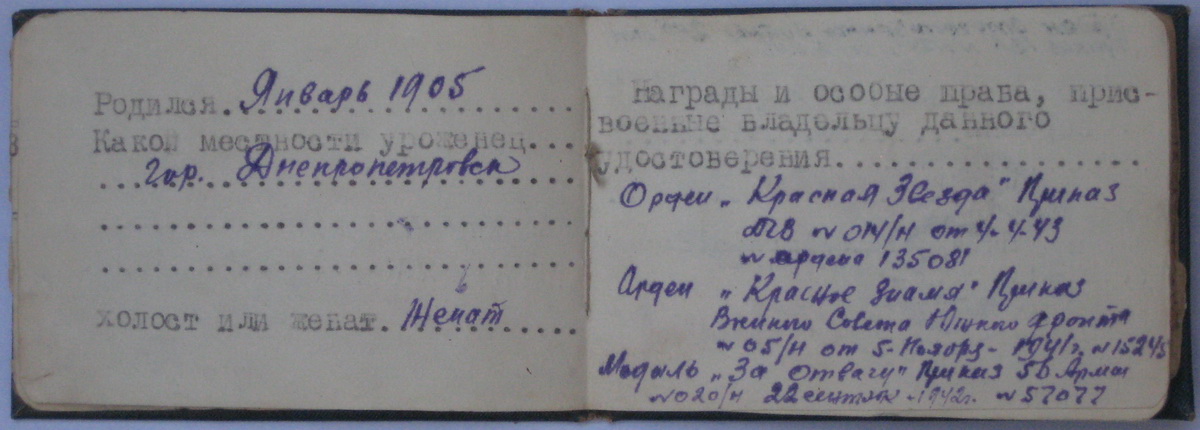 Родился. Январь 1905
Какой местности уроженец...
гор. Днепропетровск
холост или женат. Женат
Награды и особые права, прис-
военные владельцу данного
удостоверения.
Орден „Красная Звезда" Приказ
№ 04/н от 4-4-43
№ ордена 135081
Орден „Красное Знамя" Приказ
Военного Совета Южного фронта
№ 05/н от 5-Ноября-1941г. №15245
Медаль „За отвагу" Приказ 56 Армии
№020/н 22 сентября 1942г. №57077